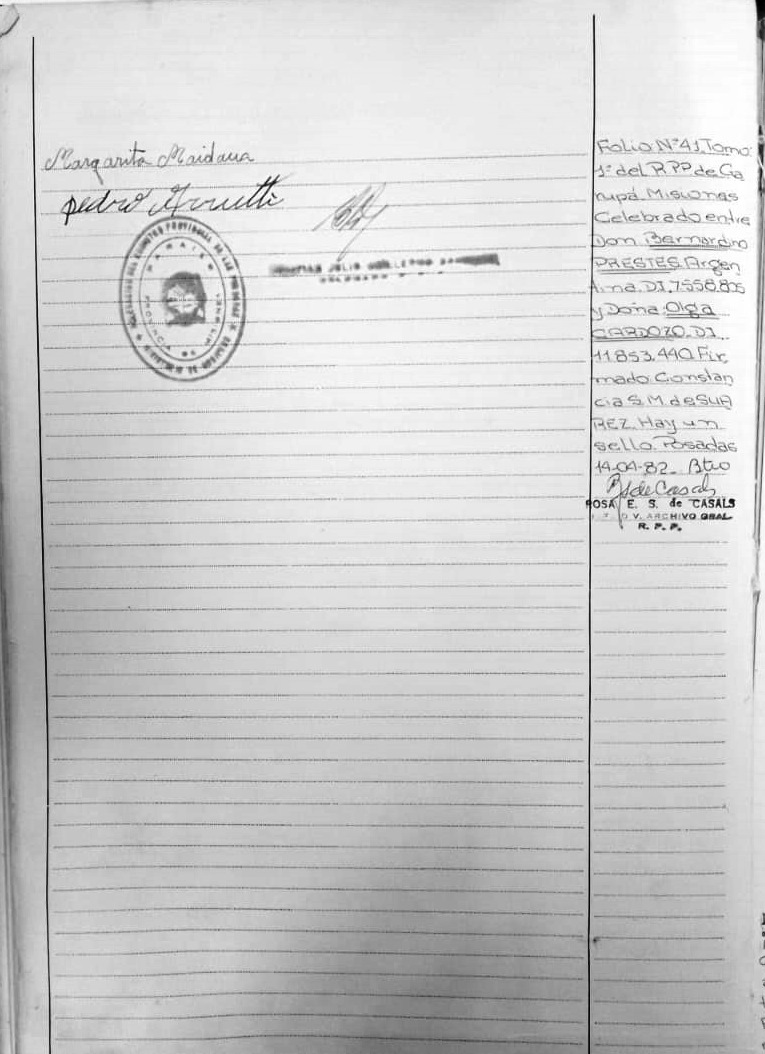 Margarita Maidana
Pedro
Folio Nº 41 Tomo
1º del R.P.P de Ga
rupá Misiones
Celebrado entre
Don Bernardino
PRESTES Argen
tina. D.I. 7.558.805
y Doña Olga
CARDOZO. D.I.
11.853.440 Fir
mado Constan
cia S.M. de SUA
REZ. Hay un
sello. Posadas
14-04-82.
de Casals
ROSA E. S. de CASALS
D V. ARCHIVO GRAL
R. P. P.